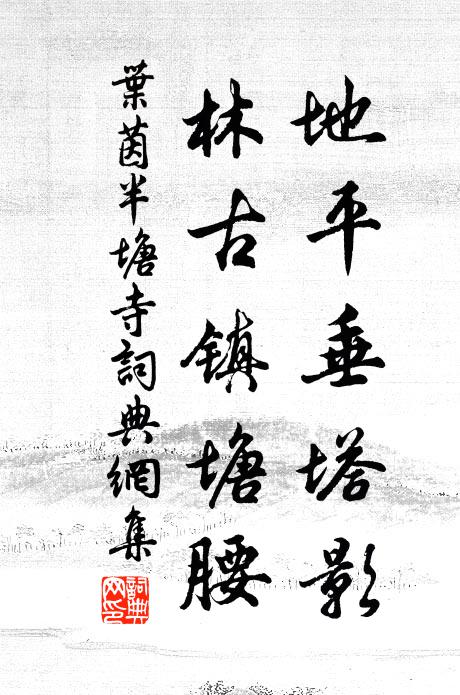 地平垂塔影
林古鎮塘腰
葉茵半塘寺詞典網集
詞典
网印